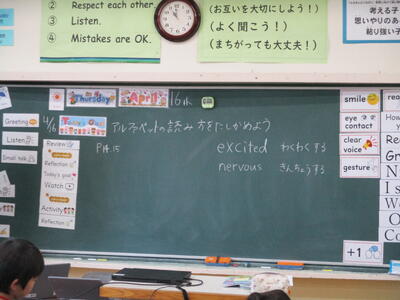 ② Respect each other.
③ Listen.
④ Mistakes are OK.
(お互いを大切にしよう!)
(よく聞こう!)
(まちがっても大丈夫!)
考える子
思いやりのあ
粘り強い子
Thursday
April
16th
4/16
Today's Goal
アルファベットの読み方をたしかめよう
Greeting
Listen
Small talk
Review
Reflection
Today's goal
Watch
Reflection
Activity
Reflection
P14. 15
excited わくわくする
nervous きんちょうする
smile
eye contact
clear voice
gesture
+1
How
Rea
Gr